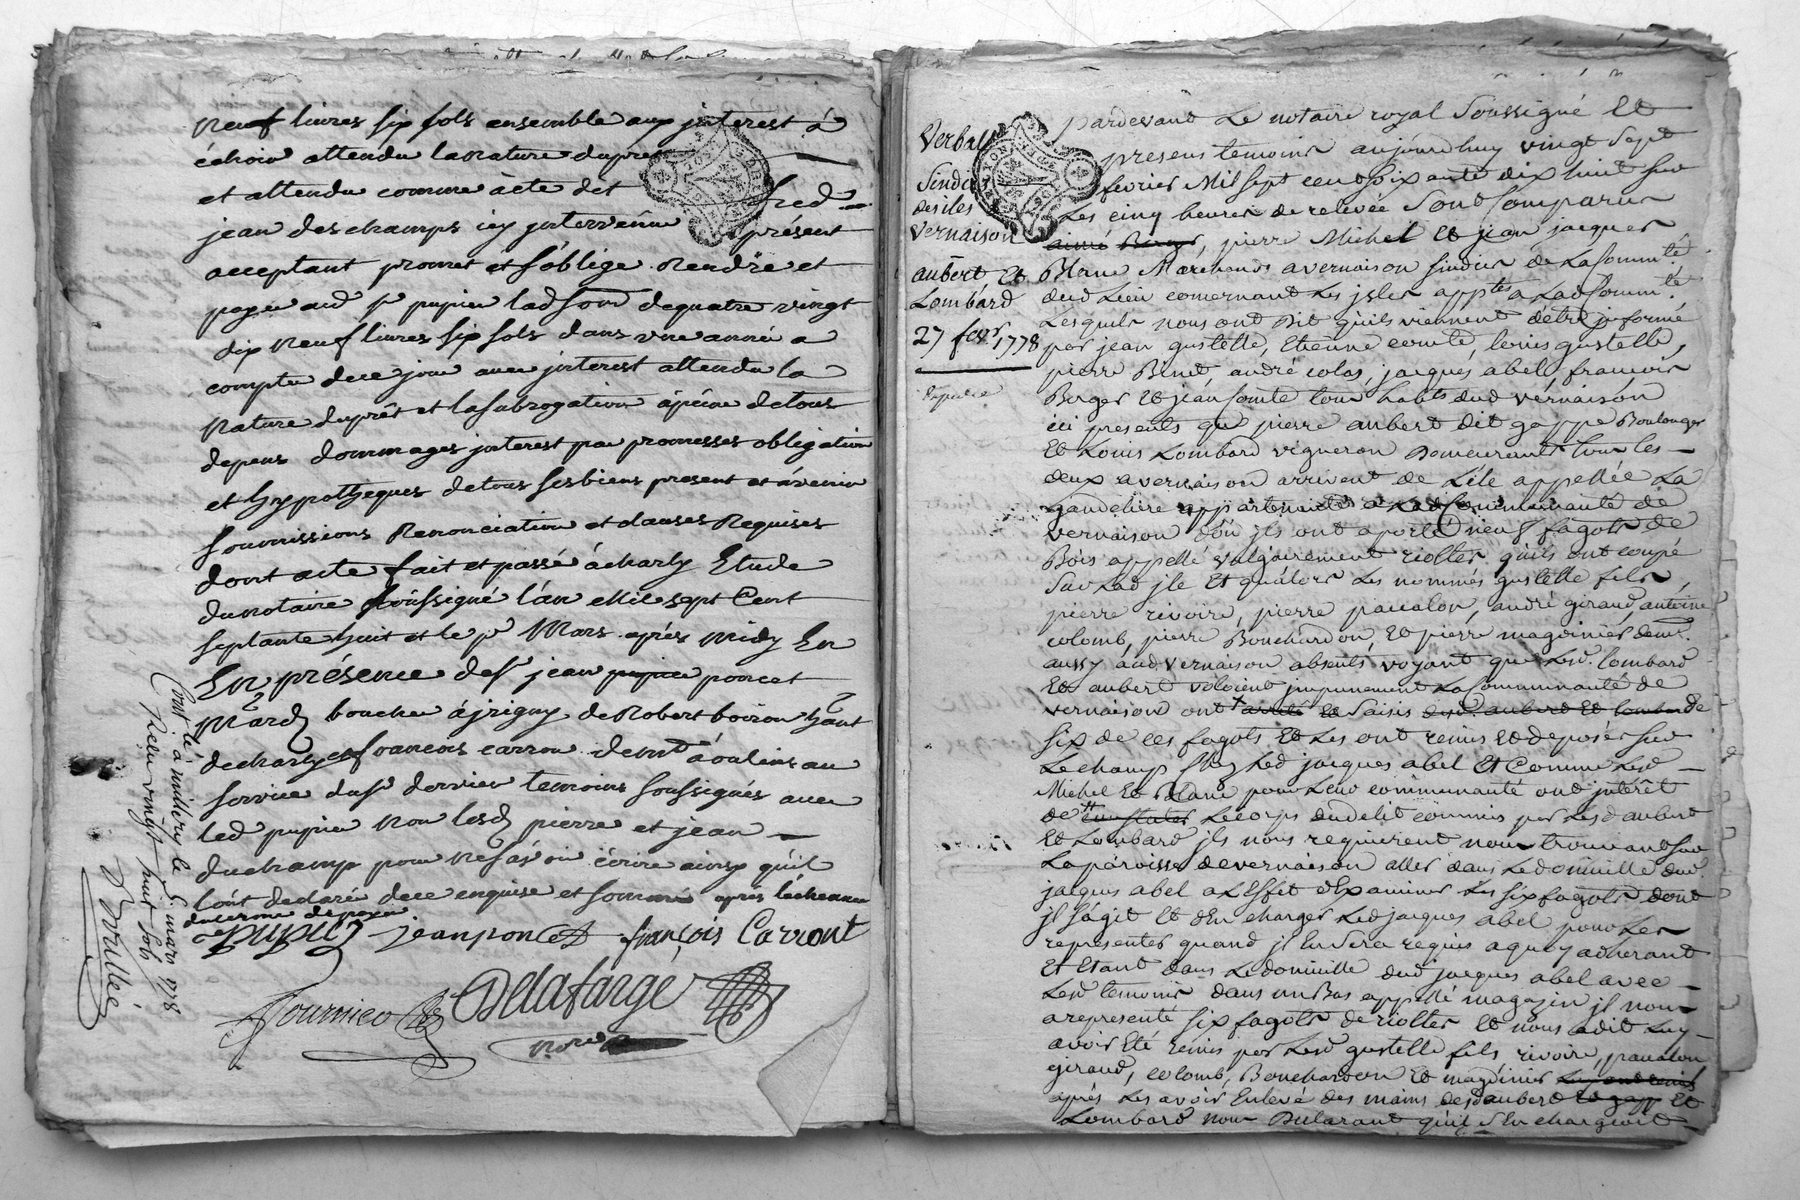 neuf livres six sols ensemble aux jnterest à
échoir attendu la nature du prest
et attendu comme àcte de
jean deschamps icy jntervenu présent
acceptant promet et s'oblige rendre et
payer aud sr pupier lad somme de quatre vingt
dix neuf livres six sols dans une année a
compter de ce jour avec jnterest attendu la
nature du prêt et la subrogation à peine de tous
depens dommages jnterest par promesses obligation
et hypotheques de tous ses biens present et àvenir
soumissions Renonciation et clauses Requises
dont acte fait et passé à charly Etude
du notaire soussigné l'an Mil sept Cent
septante huit et le pr Mars après midy En
En présence de sr jean poncet
Mard boucher à jrigny de Robert boiron habt
de charly et francois carron demt à oulins au
service dud sr dernier temoins soussignés avec
led pupier non lesd pierre et jean
duchamp pour ne sàvoir écrire ainsy qu'il
l'ont declaré de ce enquise et sommé après lécheance
du terme de payer
Pupier jean poncet françois Carront
fournier Delafarge
nore
Contlé à millery le 5 mars 1778
Reçu vingt huit sols
Verbal
Sindics
des iles
vernaison
aubert Et
Lombard
27 fevr 1778
Expediée
pardevant Le notaire royal Soussigné Et
presens temoins aujourdhuy vingt Sept
fevrier Mil sept cent soixante dix huit sur
Les cinq heures de relevée Sont Comparus
aimé Berger, pierre Michel Et jean jacques
Blanc Marchands a vernaison sindics de La Commté
dud Lieu concernant Les jsles apptes a Lad Commté.
Lesquels nous ont Dit qu'ils viennent d'être jnformé
par jean gustelle, Etienne comte, louis gustelle,
pierre Binet, andré colas, jacques abel, francois
Berger Et jean Comte tous habts dud vernaison
ici presents que pierre aubert dit gappe Boulanger
Et Louis Lombard vigneron Demeurants tous les
deux a vernaison arrivent de L'ile appellée La
gandelire appartenante a Lad Communauté de
vernaison d'où jls ont aporté neuf fagots de
Bois appellé vulgairement riottes qu'ils ont coupé
Sur Lad jle Et qu'alors Les nommés gustelle fils,
pierre rivoire, pierre pavalon, andré giraud, antoine
colomb, pierre Bouchardon, Et pierre magdinier demt.
aussy aud vernaison absents, voyant que Lesd. lombard
Et aubert voloient jmpunement La Communauté de
vernaison ont arreté Et Saisis desd. aubert Et lombard
six de ces fagots Et Les ont remis Et deposés sur
Le champ Chez Led jacques abel Et Comme Lesd
Michel Et Blanc pour Leur communauté ont jnterêt
de constater Le corps du delit commis par Lesd aubert
Et Lombard jls nous requierent nous trouvant sur
La paroisse de vernaison aller dans Le domicille dud.
jacques abel a L'Effet d'Examiner Les six fagots dont
jl s'agit Et d'En charger Led jacques abel pour Les
representer quand jl En sera requis a quoy adherant
Et Etant dans Le domicille dud jacques abel avec
Lesd temoins dans un Bas appellé magazin jl nous
a representé six fagots de riottes Et nous a dit Luy
avoir Eté remis par Lesd gustelle fils rivoire, pavalon
giraud, colomb, Bouchardon Et magdinier
après Les avoir Enlevé des mains desd aubert Et
Lombard nous Declarant qu'il s'En chargeoit